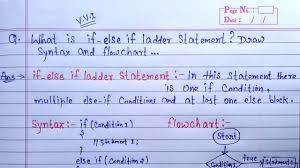 V.V.I
Page No.:
Date: / /
Q. What is if-else if ladder Statement? Draw
Syntax and flowchart...
Ans → if-else if ladder Statement :- In this Statement there
is one if Condition,
multiple else-if Conditions and at last one else block.
Syntax:- if (Condition 1) flowchart:-
{ Start
// Statement 1;
}
else if (Condition 2) Condition 1 true